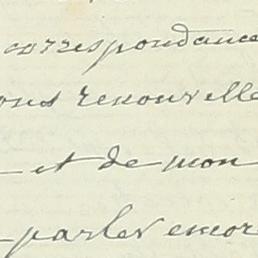 correspondance
ous renouvelle
et de mon
parler encor